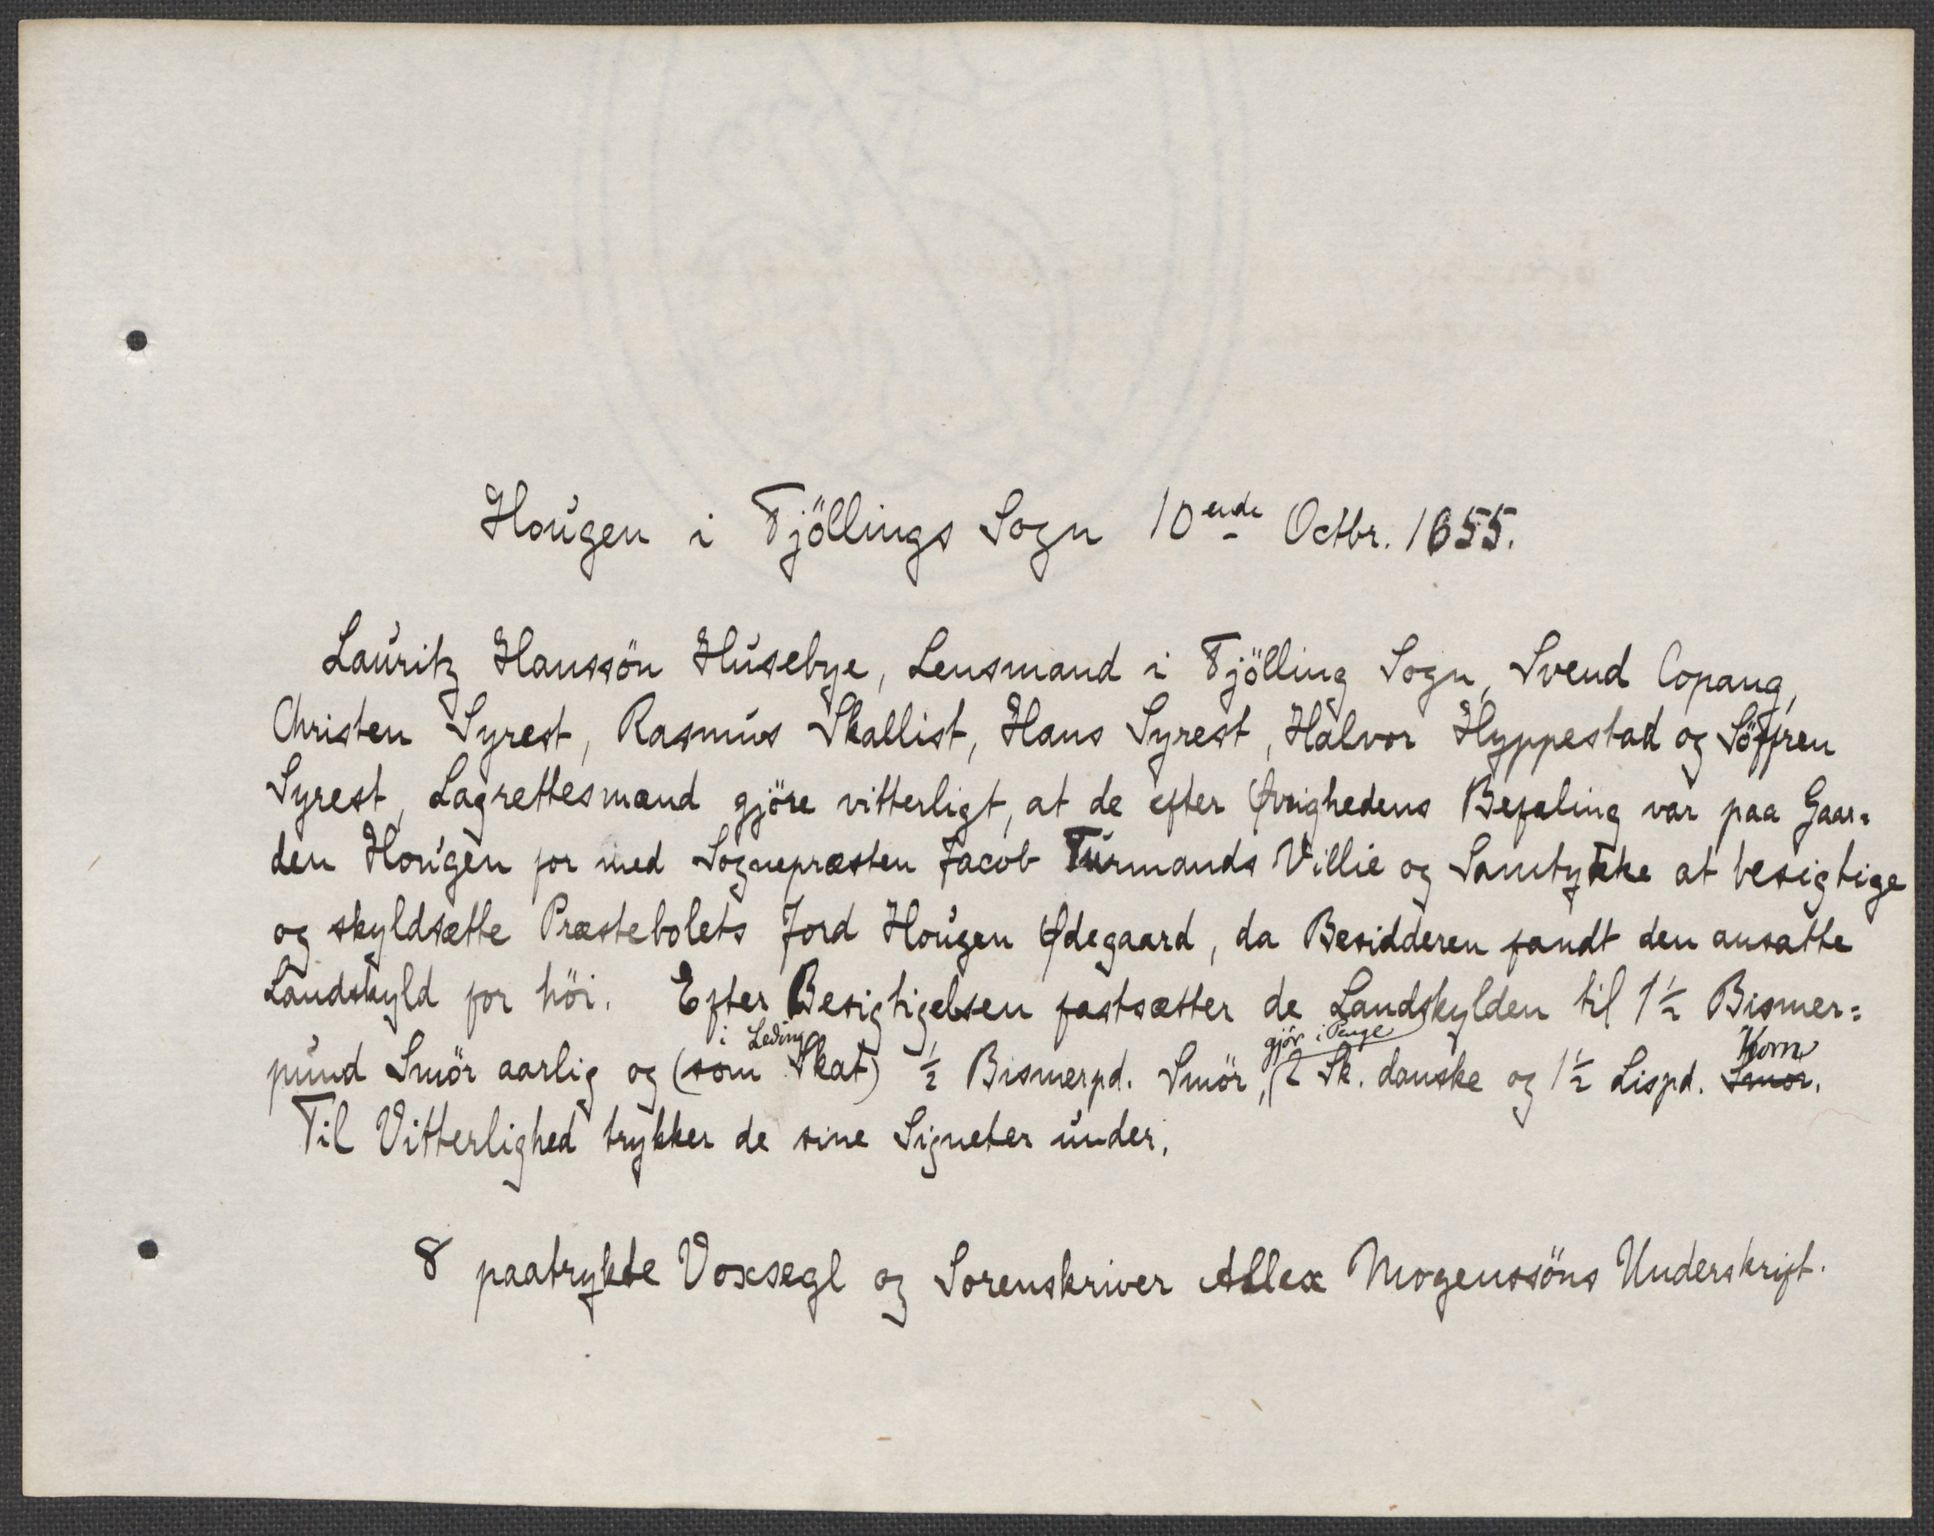 Hougen i Tjöllings Sogn 10ende Octbr. 1655.
Lauritz Hanssön Husebye, Lensmand i Tjölling Sogn, Svend Copang,
Christen Syrest, Rasmus Skallist, Hans Syrest, Halvor Hyppestad og Söffren
Syrest, Lagrettesmænd gjöre vitterligt, at de efter Øvrighedens Befaling var paa Gaar=
den Hougen for med Sognepræsten Jacob Turmands Villie og Samtykke at besigtige
og skyldsætte Præstebolets Jord Hougen Ødegaard, da Besidderen fandt den ansatte
Landskyld for höi. Efter Besigtigelsen fastsætter de Landskylden til 1½ Bismer=
i Leding gjör i Penge Korn
pund Smör aarlig og (som Skat) ½ Bismerpd. Smör, 12 Sk. danske og 1½ Lispd. Smör.
Til Vitterlighed trykker de sine Signeter under.
8 paatrykte Voxsegl og Sorenskriver Allex Mogenssöns Underskrift.